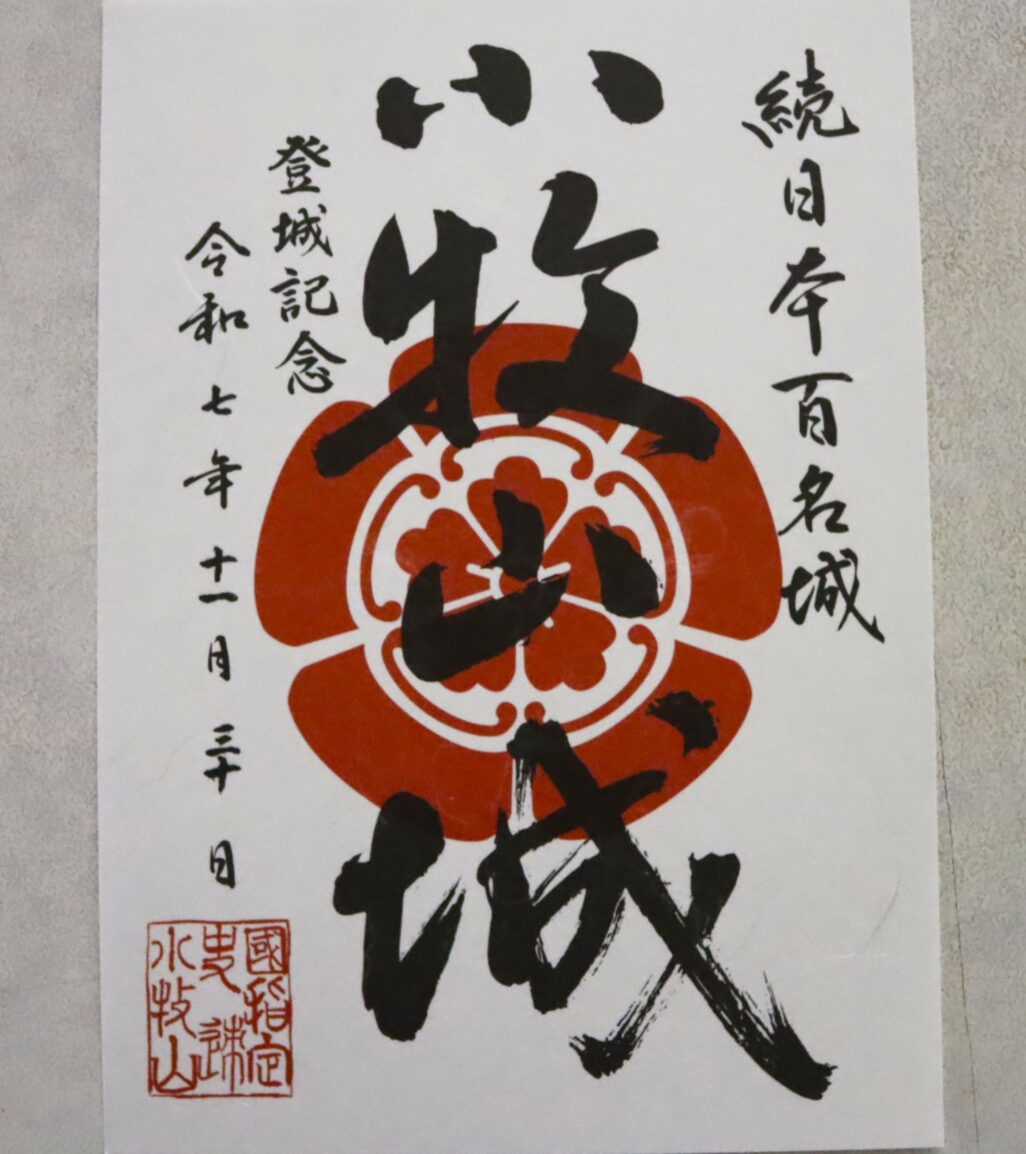 続日本百名城
小牧山城
登城記念
令和七年十一月三十日
國指定
史跡
小牧山